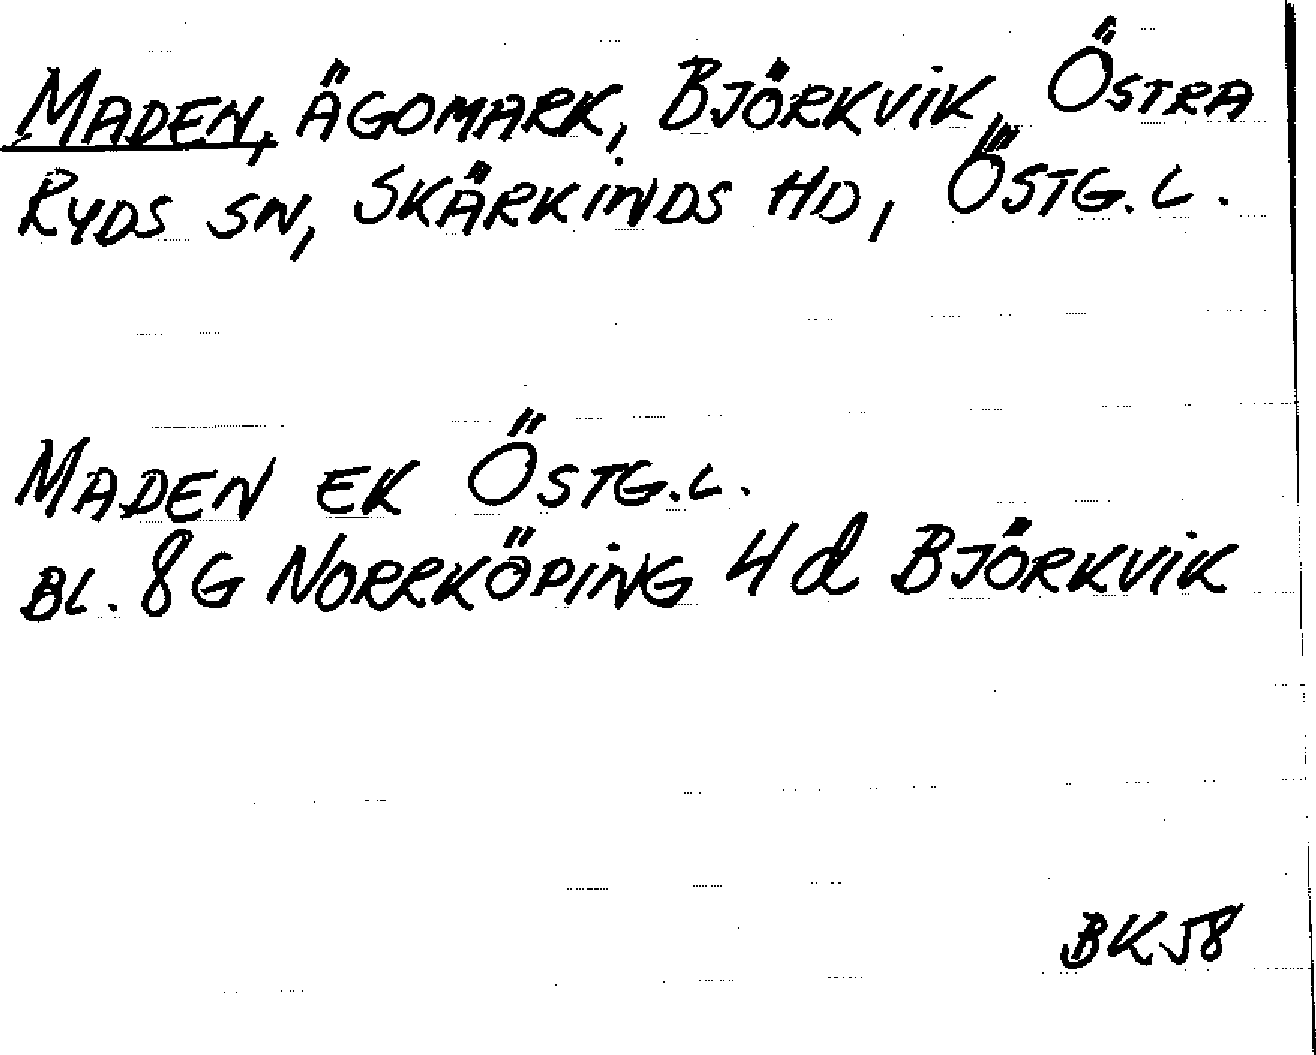 MADEN, ÄGOMARK, BJÖRKVIK, ÖSTRA
RYDS SN, SKÄRKINDS HD, ÖSTG.L.
MADEN EK ÖSTG.L.
BL. 8G NORRKÖPING 4d BJÖRKVIK
BK58